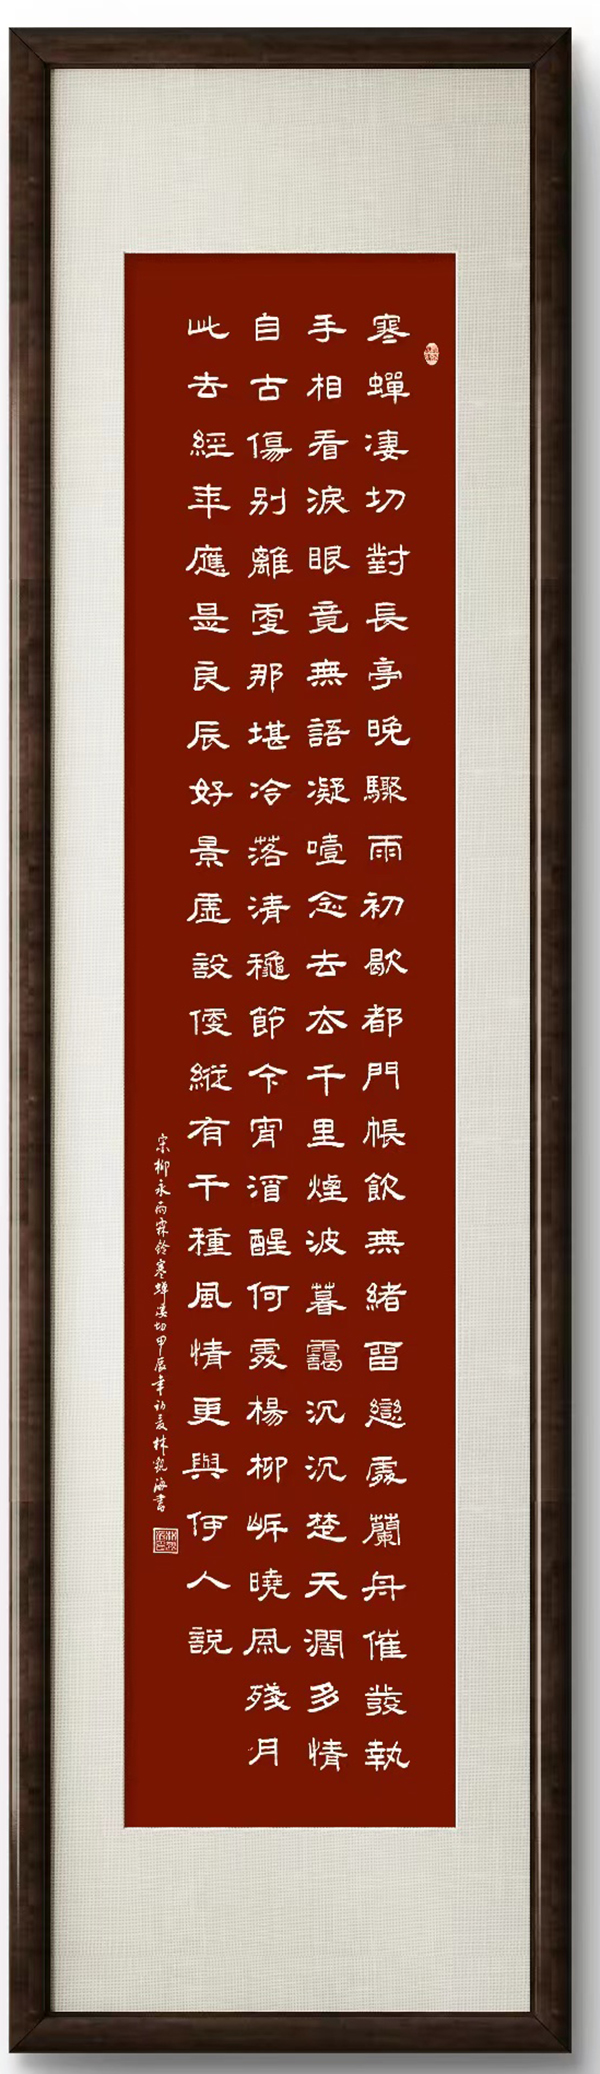 寒蟬凄切對長亭晚驟雨初歇都門帳飲無緒留戀處蘭舟催發執
手相看淚眼竟無語凝噎念去去千里煙波暮靄沉沉楚天濶多情
自古傷別離更那堪冷落清龝節今宵酒醒何處楊柳岍曉風殘月
此去經年應是良辰好景虛設便縱有千種風情更與何人說
宋柳永雨霖鈴寒蟬凄切甲辰年初夏林凱海書